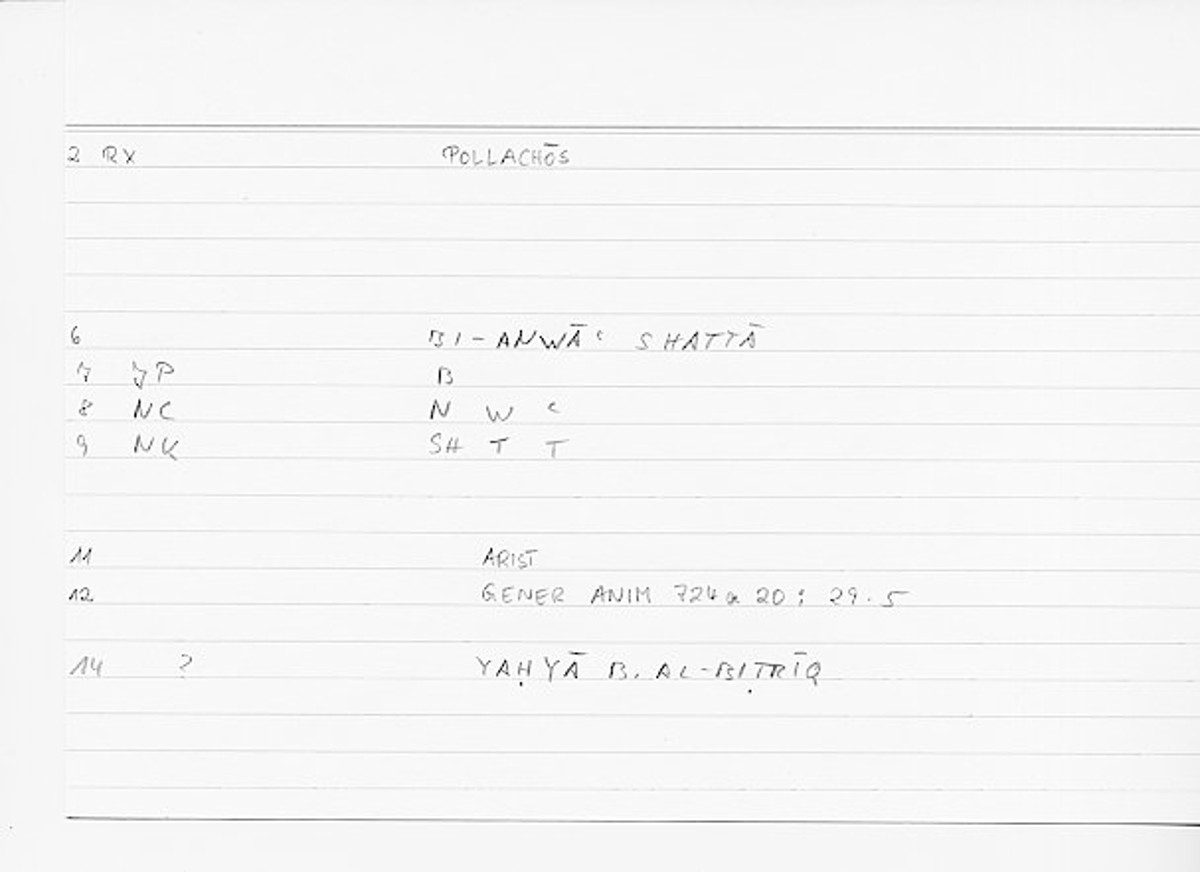 2 RX POLLACHŌS
6 BI-ANWĀʿ SHATTĀ
7 JP B
8 NC N W ʿ
9 NK SH T T
11 ARIST
12 GENER ANIM 724a 20; 29.5
14 ? YAḤYĀ B. AL-BIṬRĪQ